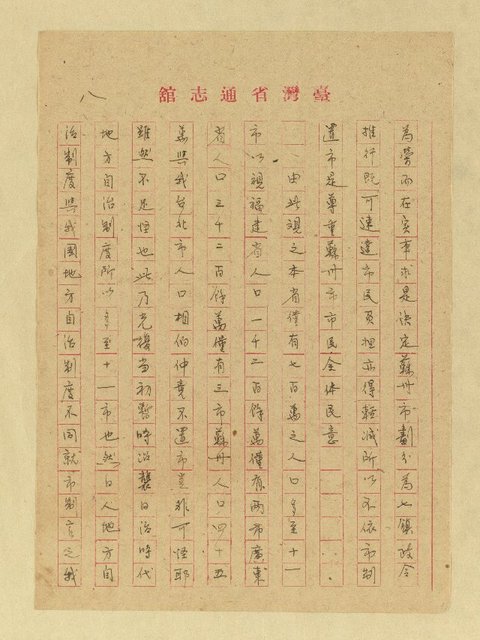 臺灣省通志館
八
為勞而在實事求是決定蘇州市劃分為七鎮政令
推行既可速達市民負担亦得輕減所以不依市制
置市是尊重蘇州市市民全体民意
由此視之本省僅有七百萬之人口多至十一
市以視福建省人口一千二百餘萬僅有兩市廣東
省人口三千二百餘萬僅有三市蘇州人口四十五
萬與我台北市人口相伯仲竟不置市豈非可怪耶
雖然不足怪也此乃光復當初暫時沿襲日治時代
地方自治制度所以多至十一市也然日人地方自
治制度與我國地方自治制度不同就市制言之我